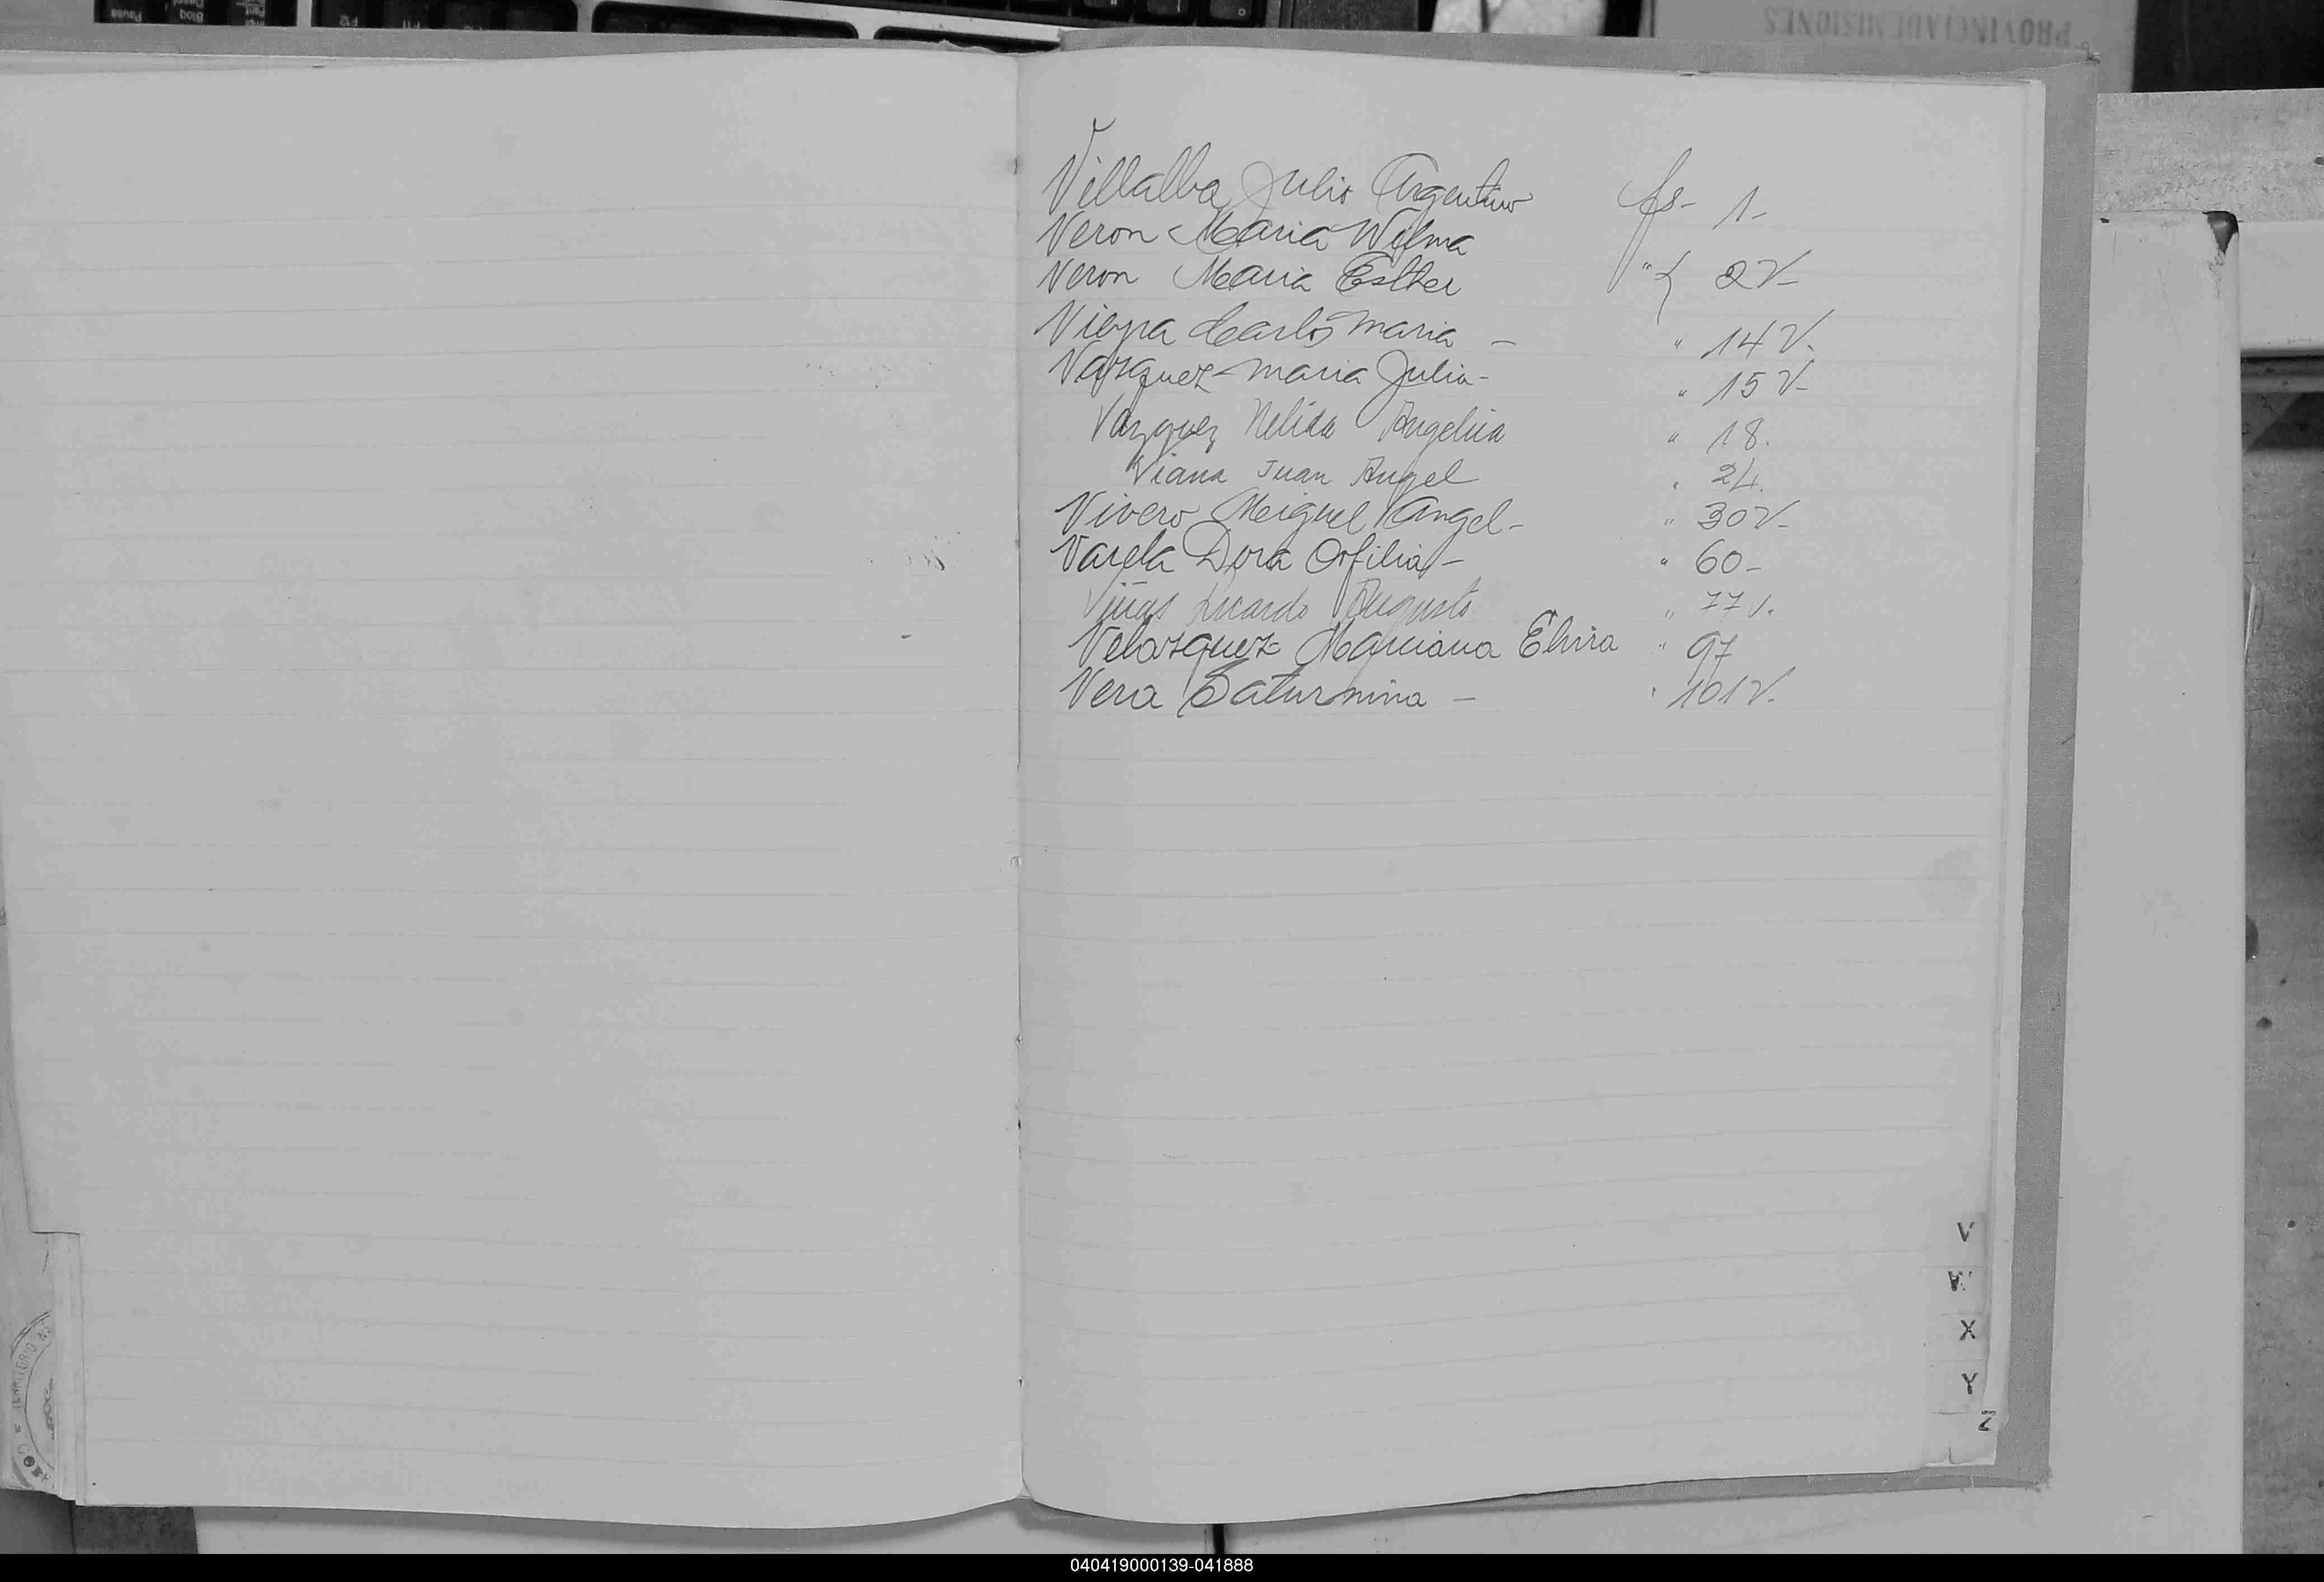 PROVINCIA DE MISIONES
Villalba Julio Argentino fs- 1-
Veron Maria Wilma
Veron Maria Esther " { 2V-
Vieyra Carlos Maria - " 14V.
Vazquez Maria Julia- " 15V-
Vazquez Nelida Angelica " 18.
Viana Juan Angel " 24.
Vivero Meiguel Angel- " 30V-
Varela Dora Orfilia- " 60-
Ricardo Augusto " 77V.
Velazquez Marciana Elvira " 97
Vera Saturnina - " 101V.
V
W
X
Y
Z
040419000139-041888